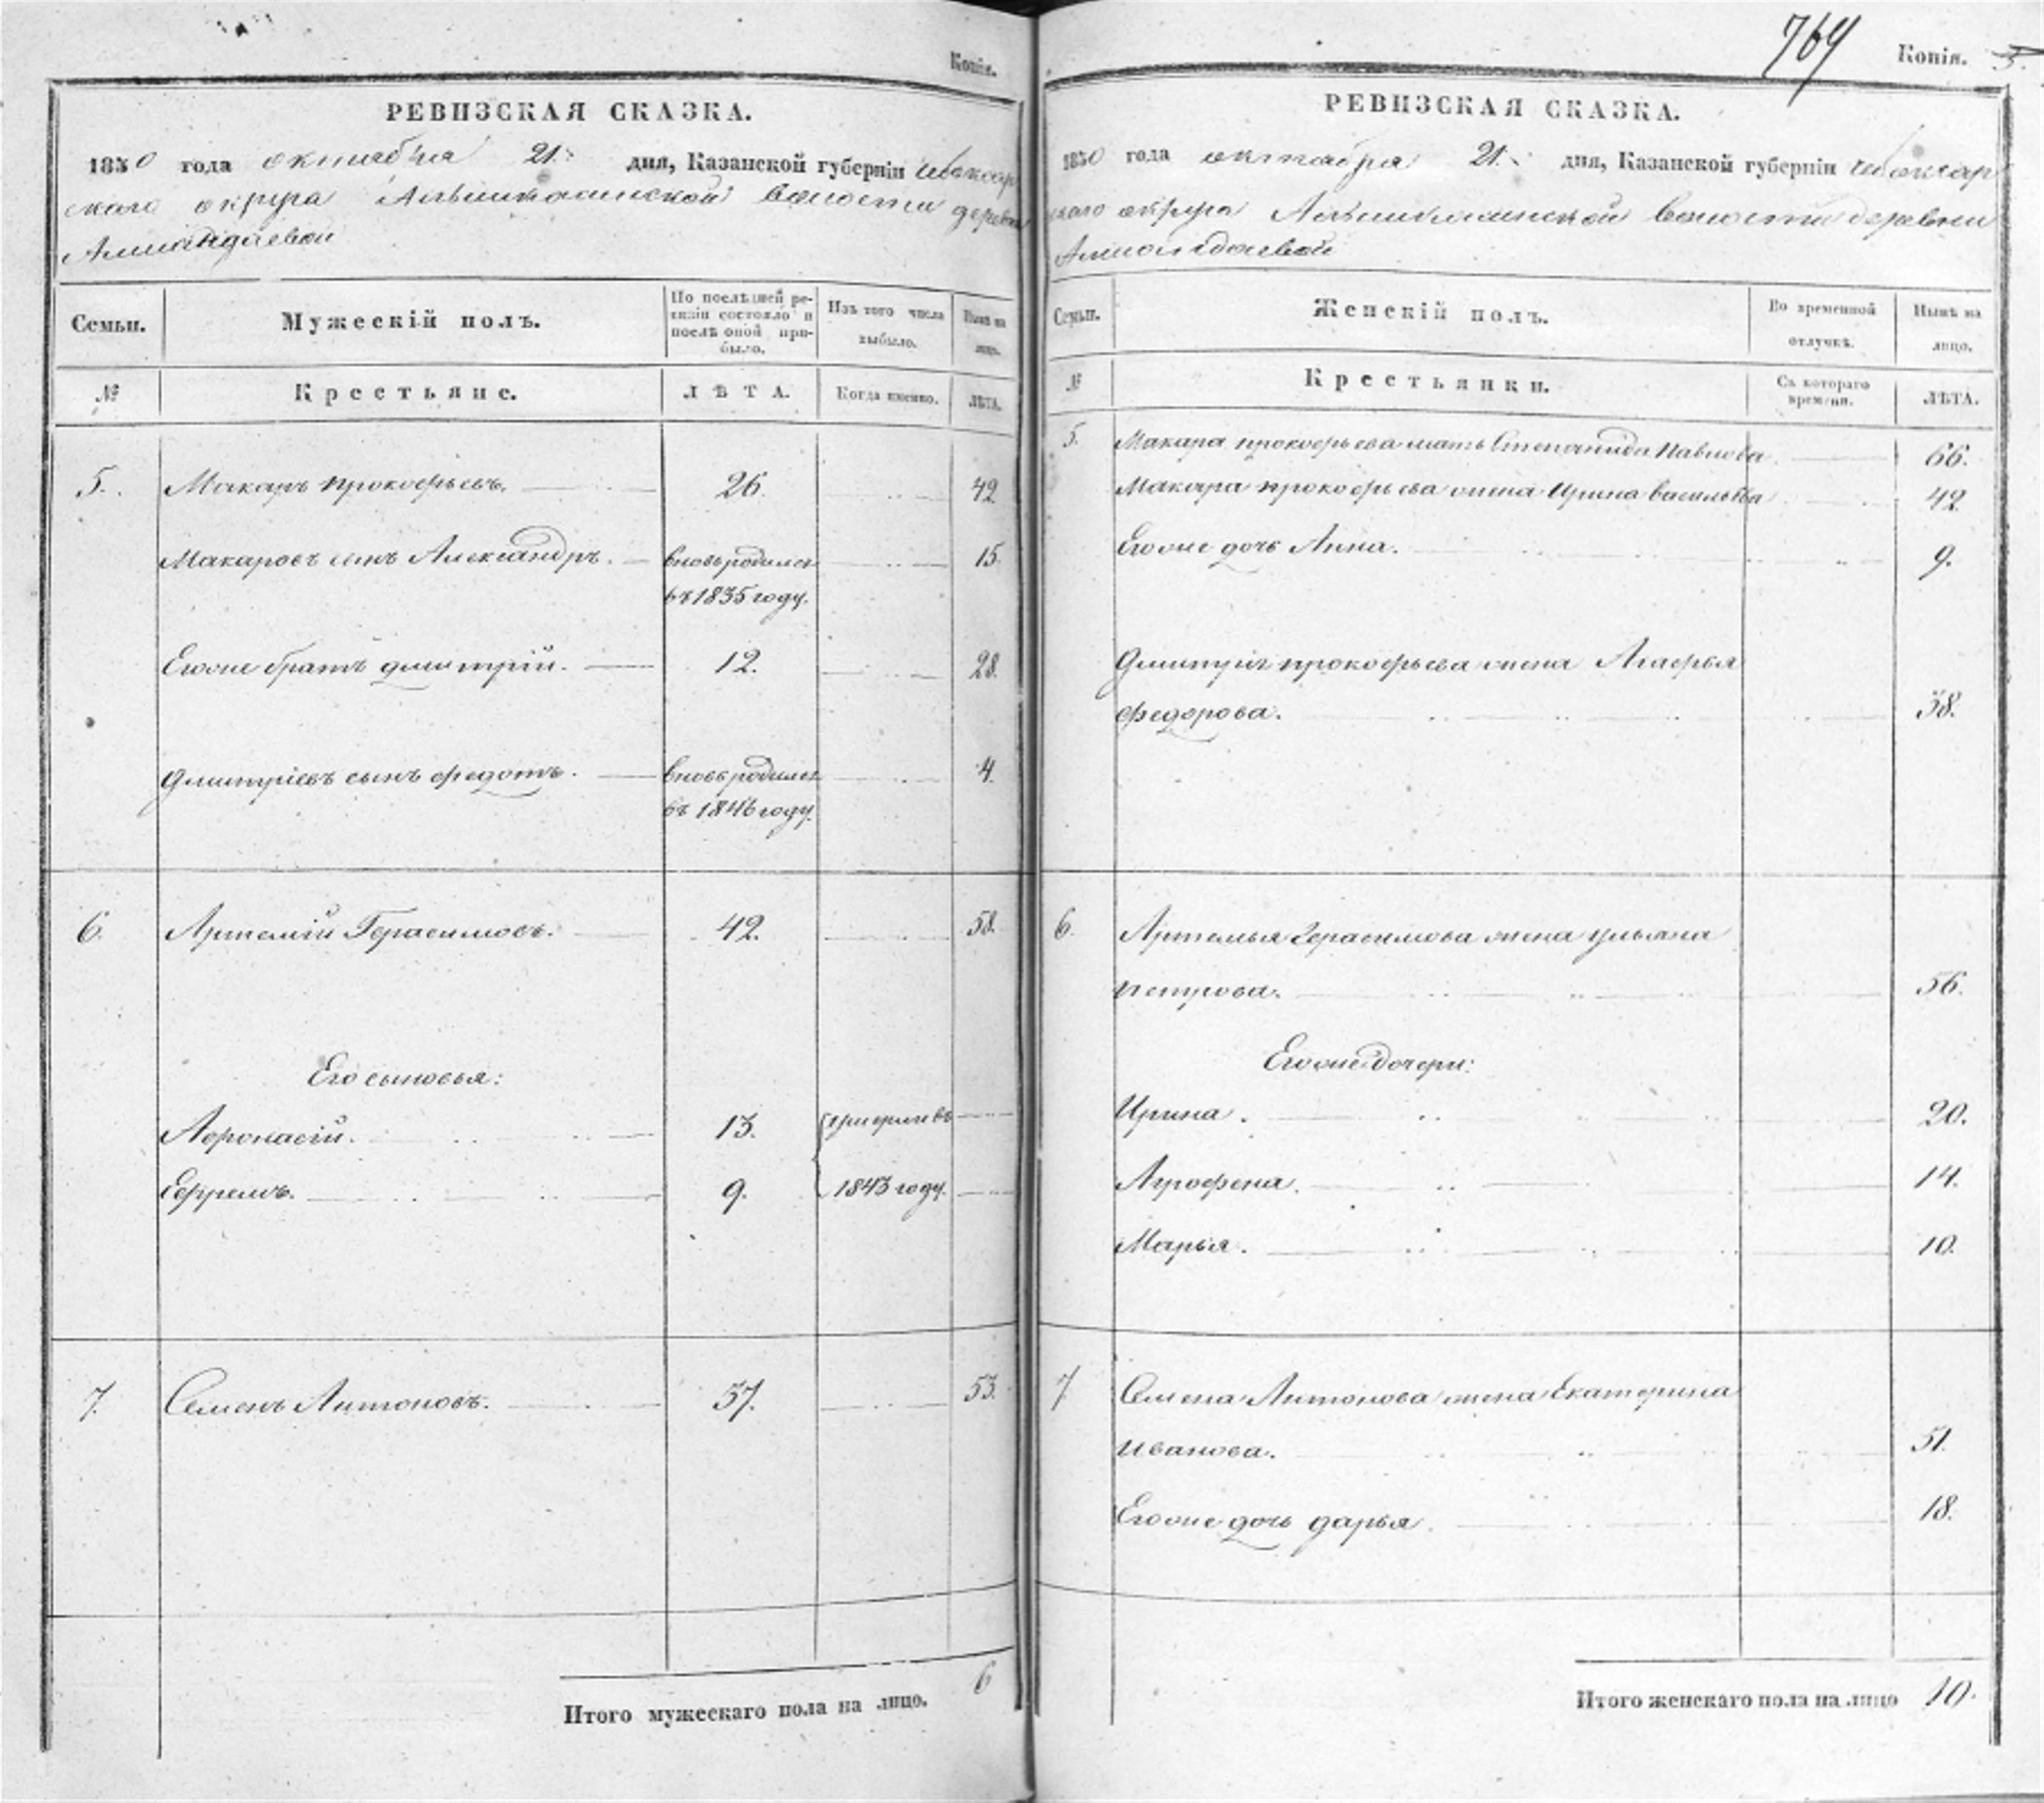 Копія.
РЕВИЗСКАЯ СКАЗКА.
1850 года октября 21. дня, Казанской губерніи Чебоксар
скаго округа волости деревни
Макаръ Прокофьевъ. 26. 42
Семьи. Мужескій полъ. По послѣдней ре-
визіи состояло и
послѣ оной при-
было. Изъ того числа
выбыло. Нынѣ на
лицо.
№ Крестьяне. ЛѢТА. Когда именно. ЛѢТА.
5. Макаръ Прокофьевъ. 26. 42
Макаровъ сынъ Александръ. вновь родился 15.
въ 1835 году.
Его же братъ Дмитрій. 12. 28.
Дмитріевъ сынъ Федотъ. вновь родился 4.
въ 1846 году.
6. Артемій Герасимовъ. 42. 58.
Его сыновья:
Афонасій. 13. умерли въ
Ефремъ. 9. 1843 году.
7. Семенъ Антоновъ. 37. 53.
Итого мужескаго пола на лицо. 6
769 Копія.
РЕВИЗСКАЯ СКАЗКА.
1850 года октября 21. дня, Казанской губерніи Чебоксар
скаго округа волости деревни
Семьи. Женскій полъ. Во временной
отлучкѣ. Нынѣ на
лицо.
№ Крестьянки. Съ котораго
времени. ЛѢТА.
5. Макара Прокофьева мать Степанида Павлова 66.
Макара Прокофьева жена Ирина Васильева 42
Его же дочь Анна. 9.
Дмитрія Прокофьева жена Агафья
Федорова. 38.
6. Артемья Герасимова жена Ульяна
Петрова. 56.
Его же дочери:
Ирина. 20.
Агрофена. 14.
Марья. 10.
7. Семена Антонова жена Екатерина
Иванова. 51.
Его же дочь Дарья. 18.
Итого женскаго пола на лицо 10.